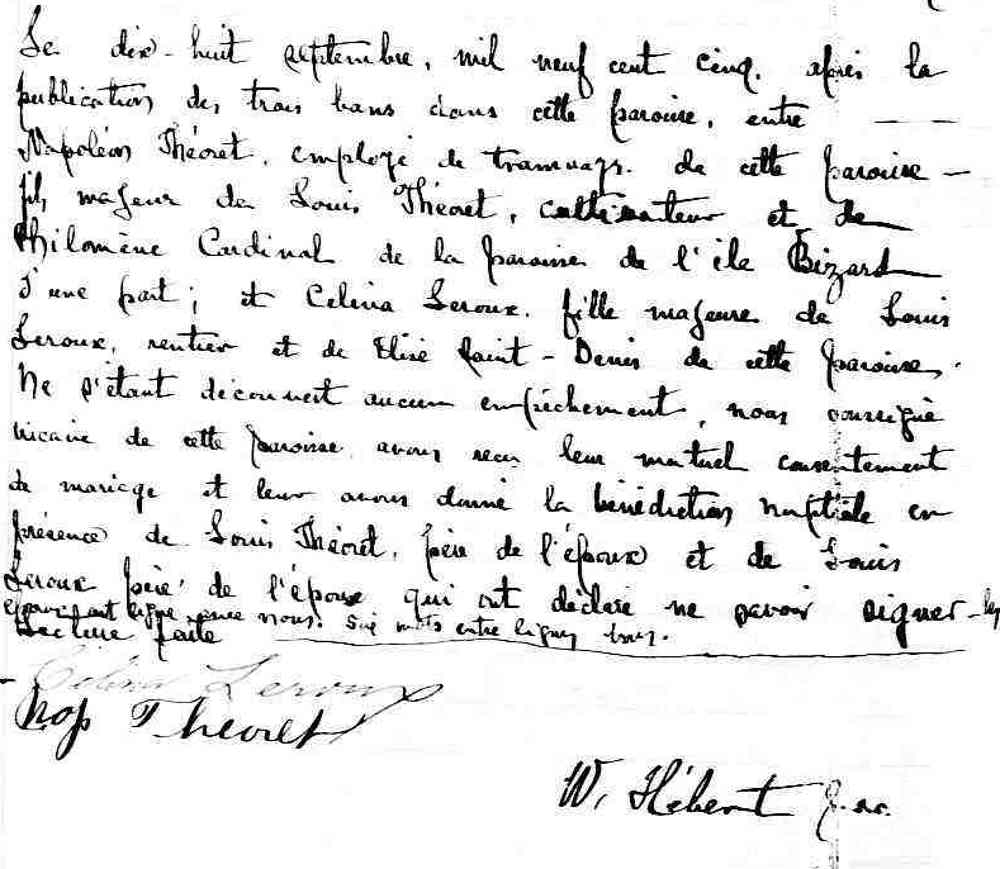 Le dix-huit septembre, mil neuf cent cinq, après la
publication des trois bans dans cette paroisse, entre
Napoléon Théoret, employé de tramways, de cette paroisse —
fils majeur de Louis Théoret, cultivateur et de
Philomène Cardinal de la paroisse de l'île Bizard
d'une part; et Celina Leroux, fille majeure de Louis
Leroux, rentier et de Elise Saint-Denis de cette paroisse.
Ne s'étant découvert aucun empêchement, nous soussigné
vicaire de cette paroisse avons reçu leur mutuel consentement
de mariage et leur avons donné la bénédiction nuptiale en
présence de Louis Théoret, père de l'époux et de Louis
Leroux père de l'épouse qui ont déclaré ne savoir signer - les
époux ont signé avec nous. Six mots entre lignes bons.
Lecture faite
Celina Leroux
Nap Theoret
W. Hébert